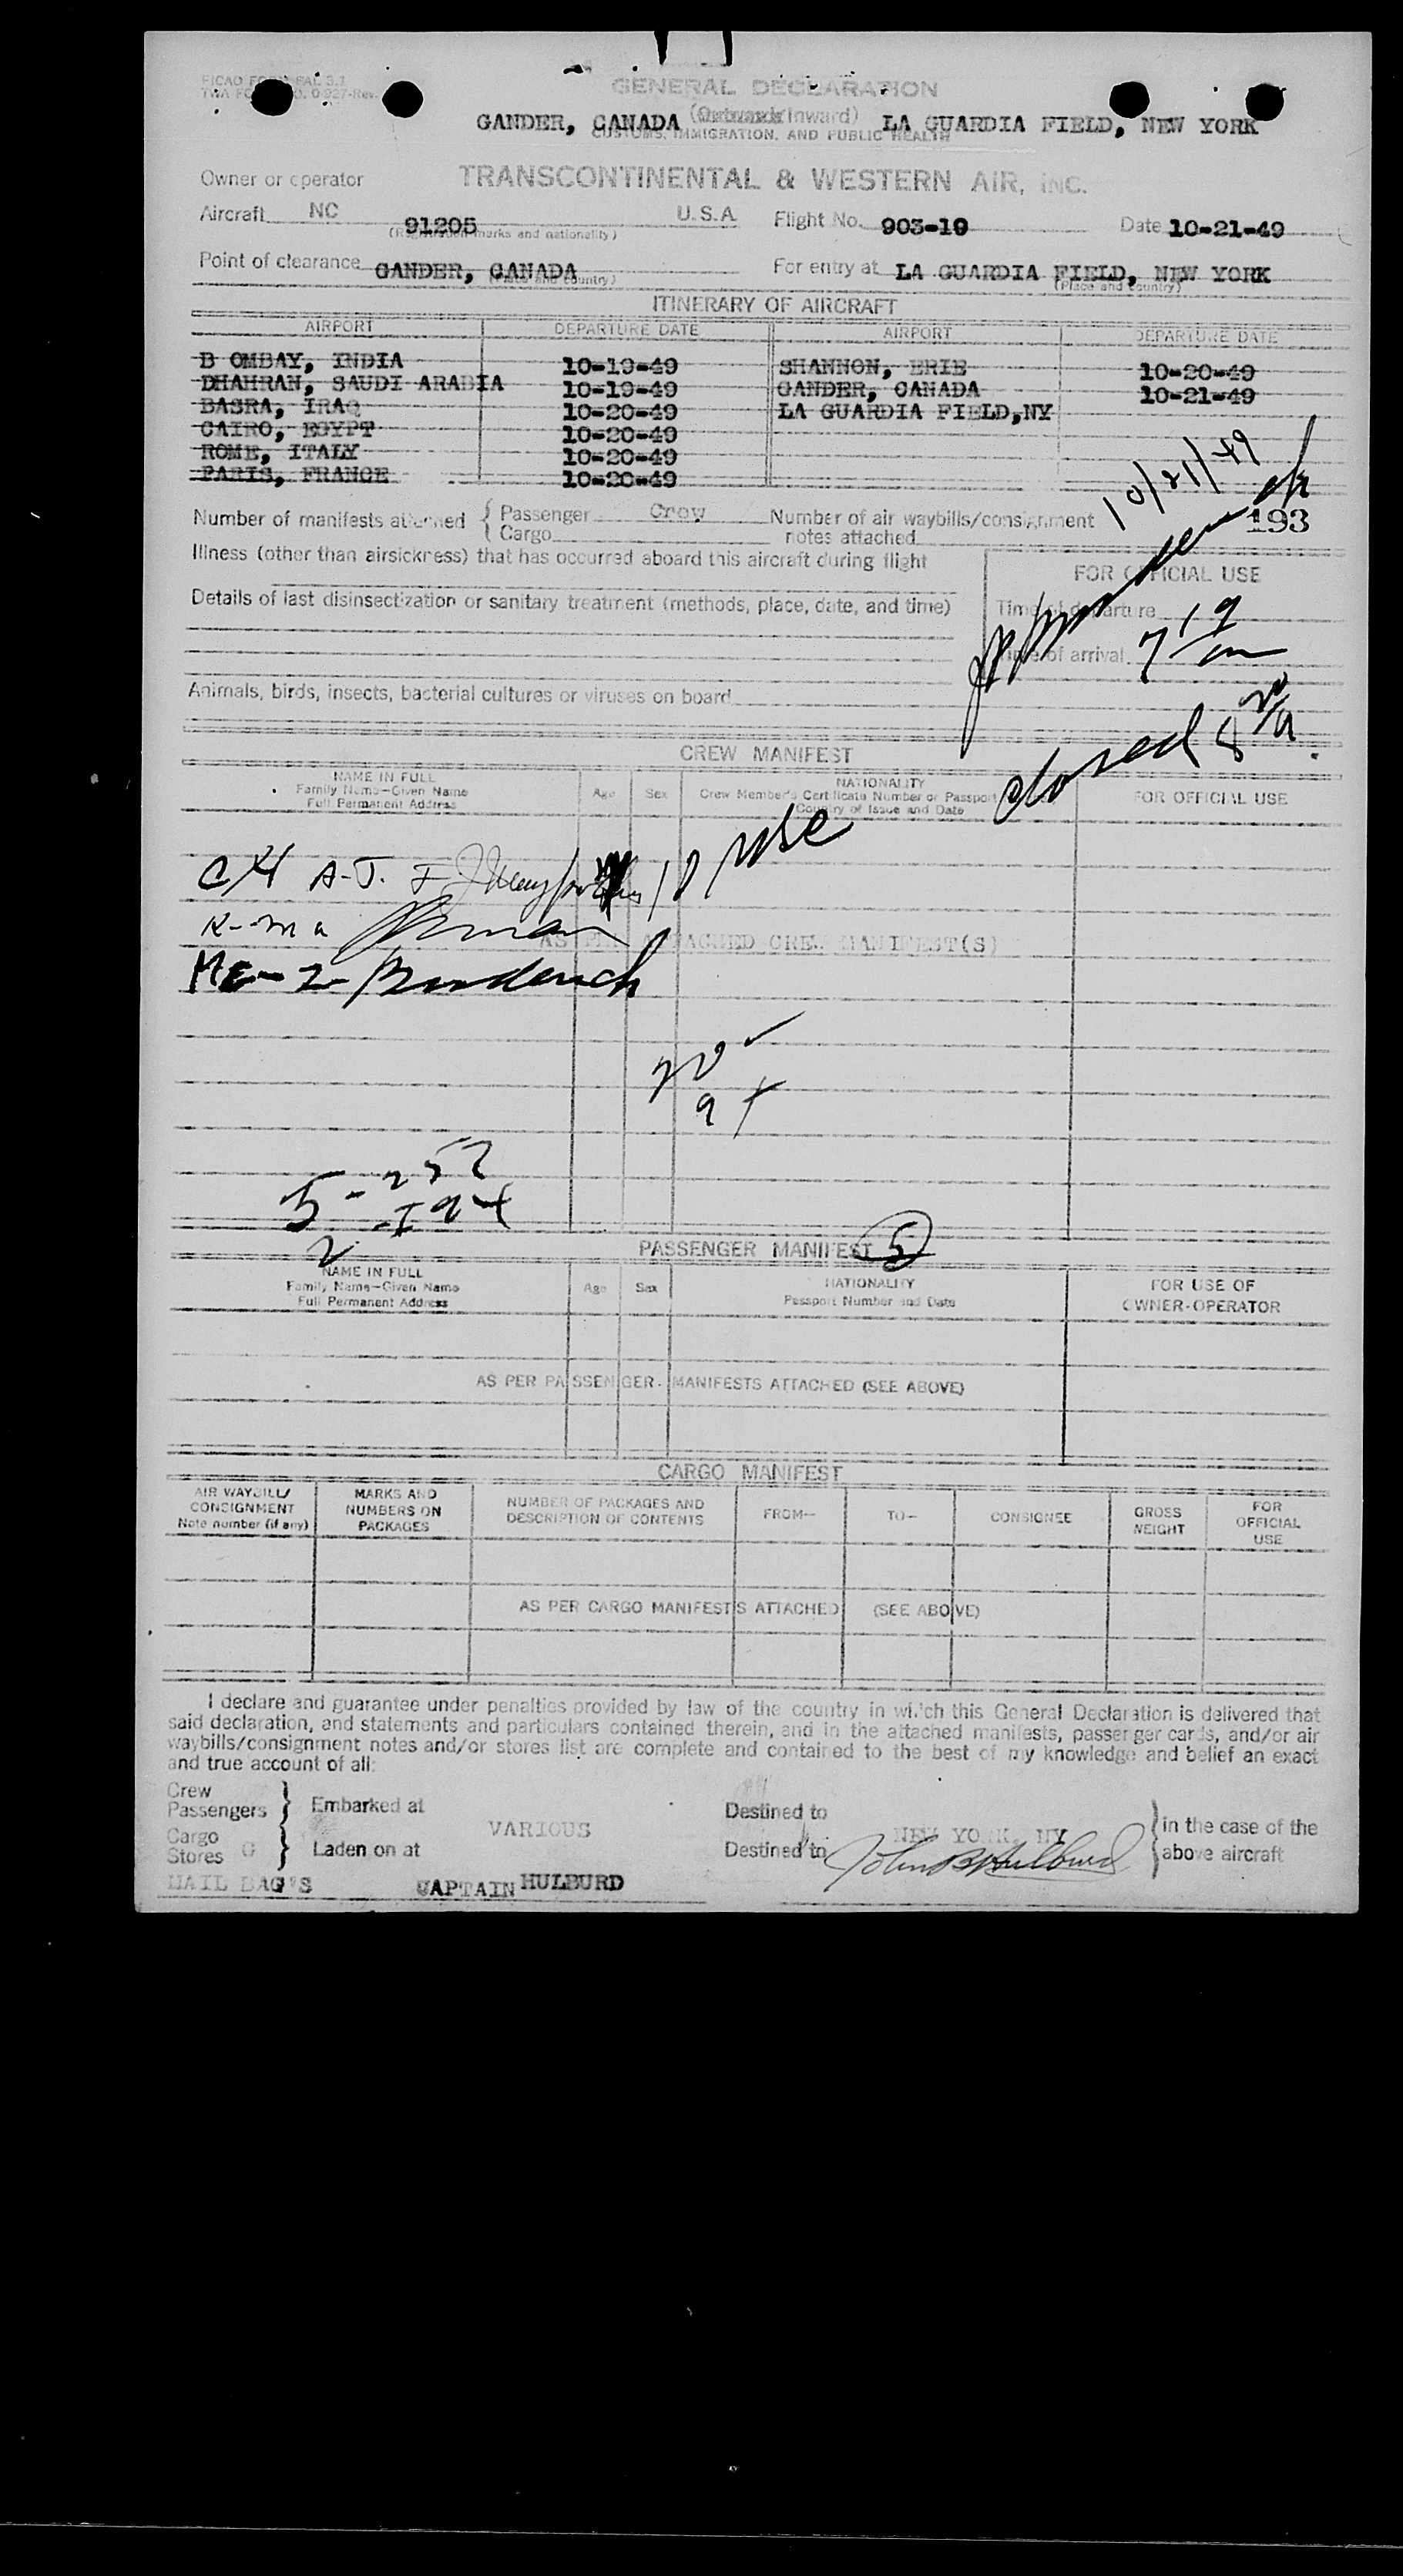 GENERAL DECLARATION
(Outward/Inward)
GANDER, CANADA LA GUARDIA FIELD, NEW YORK
CUSTOMS, IMMIGRATION, AND PUBLIC HEALTH
Owner or operator TRANSCONTINENTAL & WESTERN AIR, INC.
Aircraft NC 91205 U.S.A. Flight No. 903-19 Date 10-21-49
(Registration marks and nationality)
Point of clearance GANDER, CANADA For entry at LA GUARDIA FIELD, NEW YORK
(Place and country) (Place and country)
ITINERARY OF AIRCRAFT
AIRPORT DEPARTURE DATE AIRPORT DEPARTURE DATE
B OMBAY, INDIA 10-19-49 SHANNON, ERIE 10-20-49
DHAHRAN, SAUDI ARABIA 10-19-49 GANDER, CANADA 10-21-49
BASRA, IRAQ 10-20-49 LA GUARDIA FIELD,NY
CAIRO, EGYPT 10-20-49
ROME, ITALY 10-20-49
PARIS, FRANCE 10-20-49
10/21/49
Number of manifests attached { Passenger Crew Number of air waybills/consignment 193
{ Cargo notes attached
Illness (other than airsickness) that has occurred aboard this aircraft during flight
FOR OFFICIAL USE
Details of last disinsectization or sanitary treatment (methods, place, date, and time)
Time of departure
Time of arrival 7 19
Animals, birds, insects, bacterial cultures or viruses on board
closed 8
CREW MANIFEST
NAME IN FULL
Family Name—Given Name
Full Permanent Address
Age Sex
NATIONALITY
Crew Member's Certificate Number or Passport
Country of Issue and Date
FOR OFFICIAL USE
A.J.
AS PER ATTACHED CREW MANIFEST(S)
20
9
5 - 252
2 - 194
PASSENGER MANIFEST 5
NAME IN FULL
Family Name—Given Name
Full Permanent Address
Age Sex
NATIONALITY
Passport Number and Date
FOR USE OF
OWNER-OPERATOR
AS PER PASSENGER MANIFESTS ATTACHED (SEE ABOVE)
CARGO MANIFEST
AIR WAYBILL/
CONSIGNMENT
Note number (if any)
MARKS AND
NUMBERS ON
PACKAGES
NUMBER OF PACKAGES AND
DESCRIPTION OF CONTENTS
FROM—
TO—
CONSIGNEE
GROSS
WEIGHT
FOR
OFFICIAL
USE
AS PER CARGO MANIFESTS ATTACHED (SEE ABOVE)
I declare and guarantee under penalties provided by law of the country in which this General Declaration is delivered that
said declaration, and statements and particulars contained therein, and in the attached manifests, passenger cards, and/or air
waybills/consignment notes and/or stores list are complete and contained to the best of my knowledge and belief an exact
and true account of all:
Crew
Passengers } Embarked at Destined to
VARIOUS NEW YORK, NY } in the case of the
Cargo
Stores } Laden on at Destined to above aircraft
MAIL BAG'S CAPTAIN HULBURD